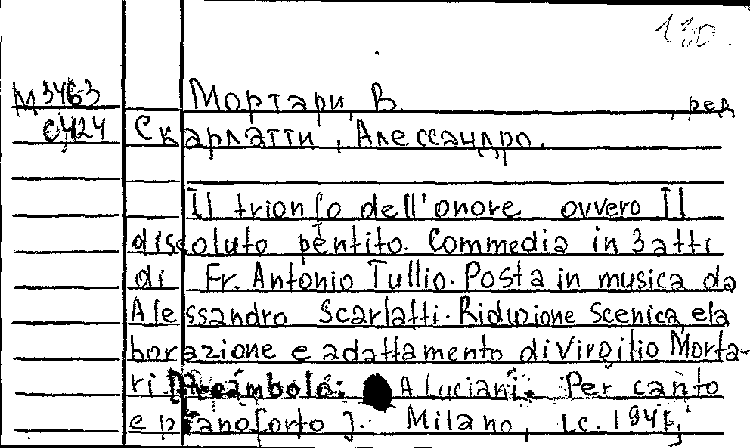 130.
М3463 Мортари, В. , ред
С424 Скарлатти, Алессандро.
Il trionfo dell'onore ovvero Il
dissoluto pentito. Commedia in 3 atti
di Fr. Antonio Tullio. Posta in musica da
Alessandro Scarlatti. Riduzione scenica, ela
borazione e adattamento di Virgilio Morta-
ri [Preambolo: A Luciani. Per canto
e pianoforto]. Milano,